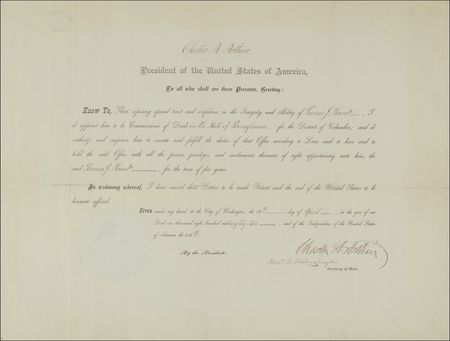 Chester A. Arthur
President of the United States of America,
To all who shall see these Presents, Greeting:
Know Ye, That reposing special trust and confidence in the Integrity and Ability of Thomas J. Hunt, I
do appoint him to be Commissioner of Deeds in the State of Pennsylvania, for the District of Columbia; and do
authorize and empower him to execute and fulfill the duties of that Office according to Law, and to have and to
hold the said Office, with all the powers, privileges and emoluments thereunto of right appertaining unto him, the
said Thomas J. Hunt, for the term of five years.
In testimony whereof, I have caused these Letters to be made Patent and the seal of the United States to be
hereunto affixed.
Given under my hand, at the City of Washington, the 19th day of April, in the year of our
Lord one thousand eight hundred and eighty-two, and of the Independence of the United States
of America the 106th.
By the President:
Chester A. Arthur
Secretary of State.